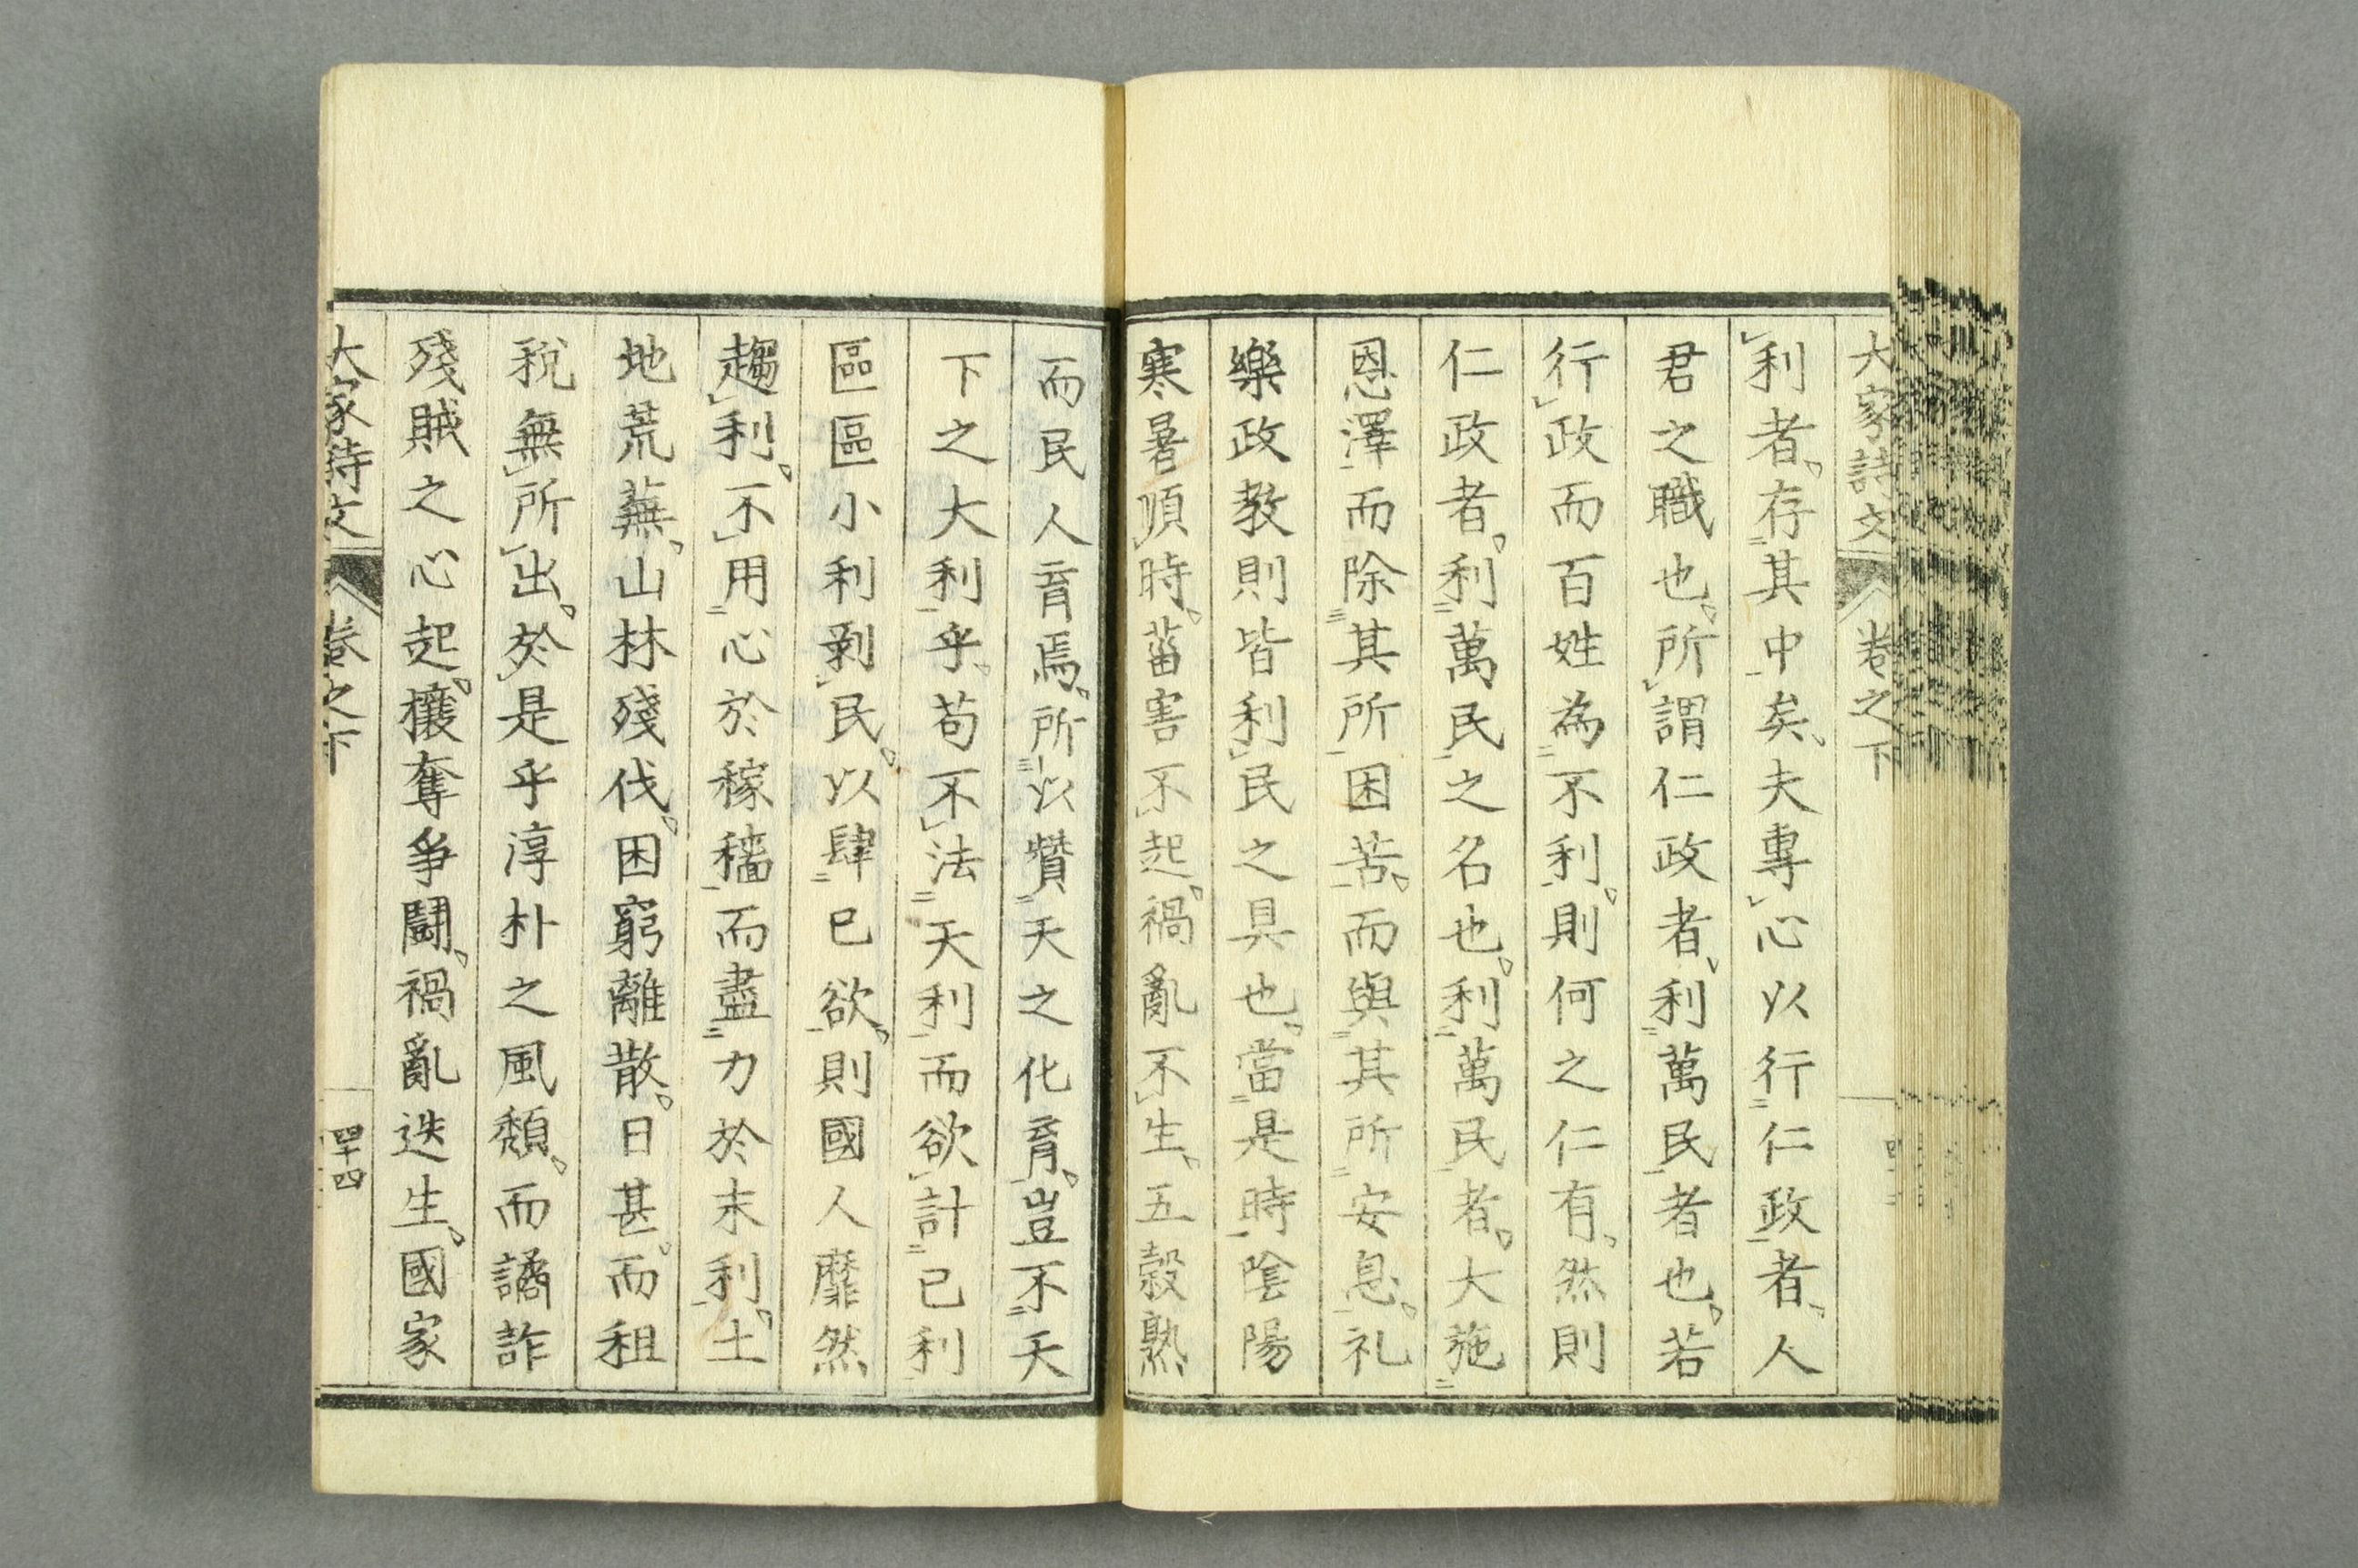 大家詩文 卷之下
利者。存其中矣、夫專心以行仁政者、人
君之職也。所謂仁政者、利萬民者也。若
行政而百姓為不利。則何之仁有。然則
仁政者。利萬民之名也。利萬民者。大施
恩澤而除其所困苦。而與其所安息。礼
樂政教則皆利民之具也。當是時陰陽
寒暑順時。菑害不起。禍亂不生。五穀熟
而民人育焉。所以贊天之化育。豈不天
下之大利乎。苟不法天利而欲計已利
區區小利剥民。以肆已欲。則國人靡然
趨利。不用心於稼穡而盡力於末利。土
地荒蕪。山林殘伐。困窮離散。日甚。而租
稅無所出。於是乎淳朴之風頽。而譎詐
殘賊之心起。攘奪爭鬪。禍亂迭生。國家
大家詩文 卷之下 四十四